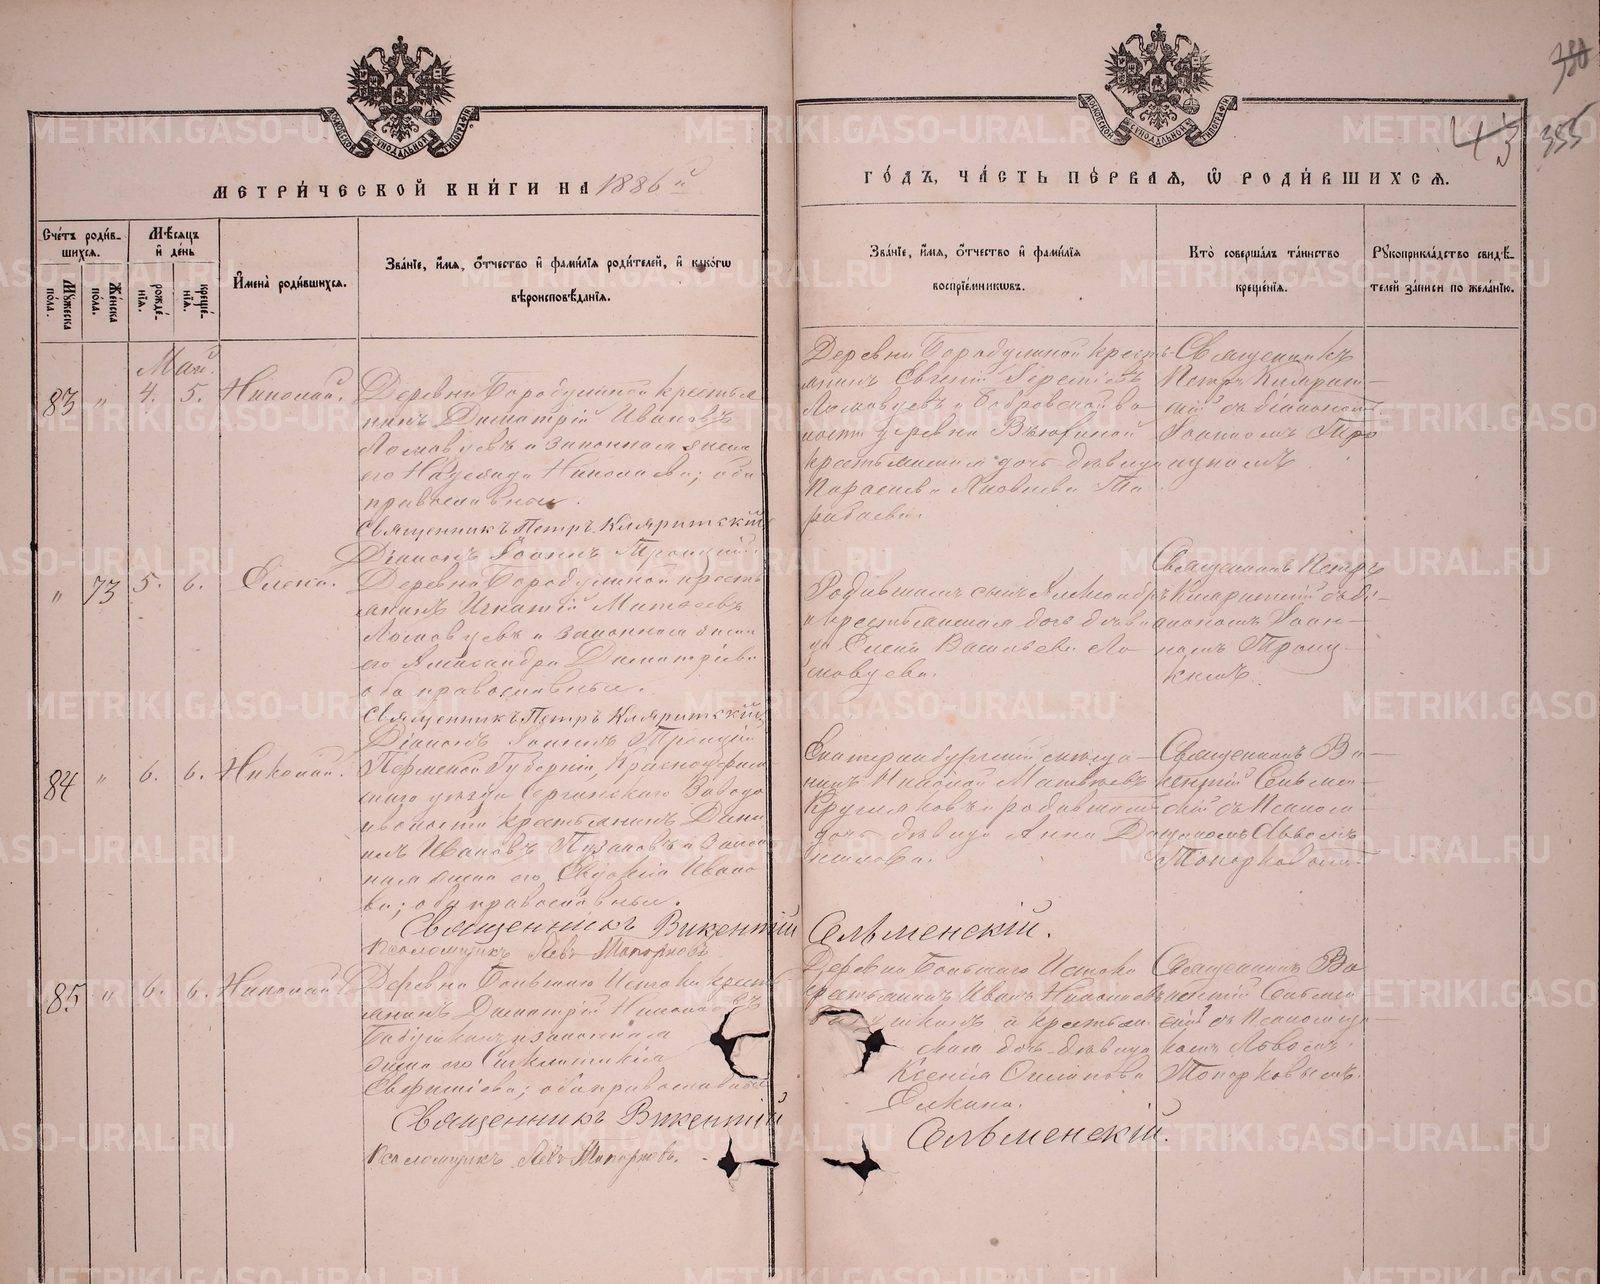 МЕТРИ́ЧЕСКОЙ КНИ́ГИ НА 1886й
ГО́ДЪ, ЧА́СТЬ ПЕ́РВАЯ, Ѡ РОДИ́ВШИХСЯ.
380
43 355
МОСКОВСКОЙ СѴНОДАЛЬНОЙ ТИПОГРАФІИ
МОСКОВСКОЙ СѴНОДАЛЬНОЙ ТИПОГРАФІИ
Сче́тъ роди́в-
шихся.
Му́жеска
по́ла.
Же́нска
по́ла.
Мѣ́сяцъ
и де́нь
рожде́-
нія.
креще́-
нія.
И҆мена̀ роди́вшихся.
Зва́ніе, и҆́мя, ѻ҆́тчество и҆ фами́лія роди́телей, и҆ како́гѡ
вѣроисповѣ́данія.
Зва́ніе, и҆́мя, ѻ҆́тчество и҆ фами́лія
воспріе́мникѡвъ.
Кто̀ соверша́лъ та́инство
креще́нія.
Рꙋкоприкла́дство свидѣ́-
телей за́писи по жела́нію.
Май.
83 " 4. 5. Николай.
Деревни Бородулиной крестья
нинъ Димитрій Ивановъ
Ломовцевъ и законная жена
его Надежда Николаева; оба
православные.
Священникъ Петръ Кляритскій
Діаконъ Іоаннъ Троицкій
Деревни Бородулиной кресть-
янинъ Евгеній
Ломовцевъ и Бобровской во
лости деревни
крестьянская дочь девица
Параскева Яковлева
Священникъ
Петръ Кляритс-
кій съ діакономъ
Іоанномъ Тро
ицкимъ.
" 73 5. 6. Елена.
Деревни Бородулиной кресть
янинъ Игнатій Матвеевъ
Ломовцевъ и законная жена
его Александра Димитріева
оба православные.
Священникъ Петръ Кляритскій
Діаконъ Іоаннъ Троицкій
Родившаго сынъ Александръ
и крестьянская дочь деви
ца Елена Васильева Ло
мовцева.
Священникъ Петръ
Кляритскій съ ді-
акономъ Іоан-
номъ Троиц-
кимъ.
84 " 6. 6. Николай.
Пермской Губерніи, Красноуфим
скаго уезда Сергинскаго Завода
волости крестьянинъ Дани
илъ Ивановъ Пузановъ и закон
ная жена его Евдокія Ивано
ва; оба православные.
Священникъ Викентій Сельменскій.
Псаломщикъ Левъ Топорковъ
Екатеринбургскій мѣща-
нинъ Николай Матвеевъ
Кругляковъ и родившаго
дочь девица Анна Да
нилова.
Священникъ Ви-
кентій Сельмен-
скій съ Псалом-
щикомъ Львомъ
Топорковымъ.
85 " 6. 6. Николай
Деревни Большаго Истока кресть
янинъ Димитрій Николаевъ
Бабушкинъ и законная
жена его Синклитикія
оба православные
Священникъ Викентій Сельменскій.
Псаломщикъ Левъ Топорковъ.
Деревни Большаго Истока
крестьянинъ Иванъ Николаевъ
Бабушкинъ и крестьян
ская дочь девица
Ксенія
Елкина.
Священникъ Ви
кентій Сельмен
скій съ Псаломщи-
комъ Львомъ
Топорковымъ.